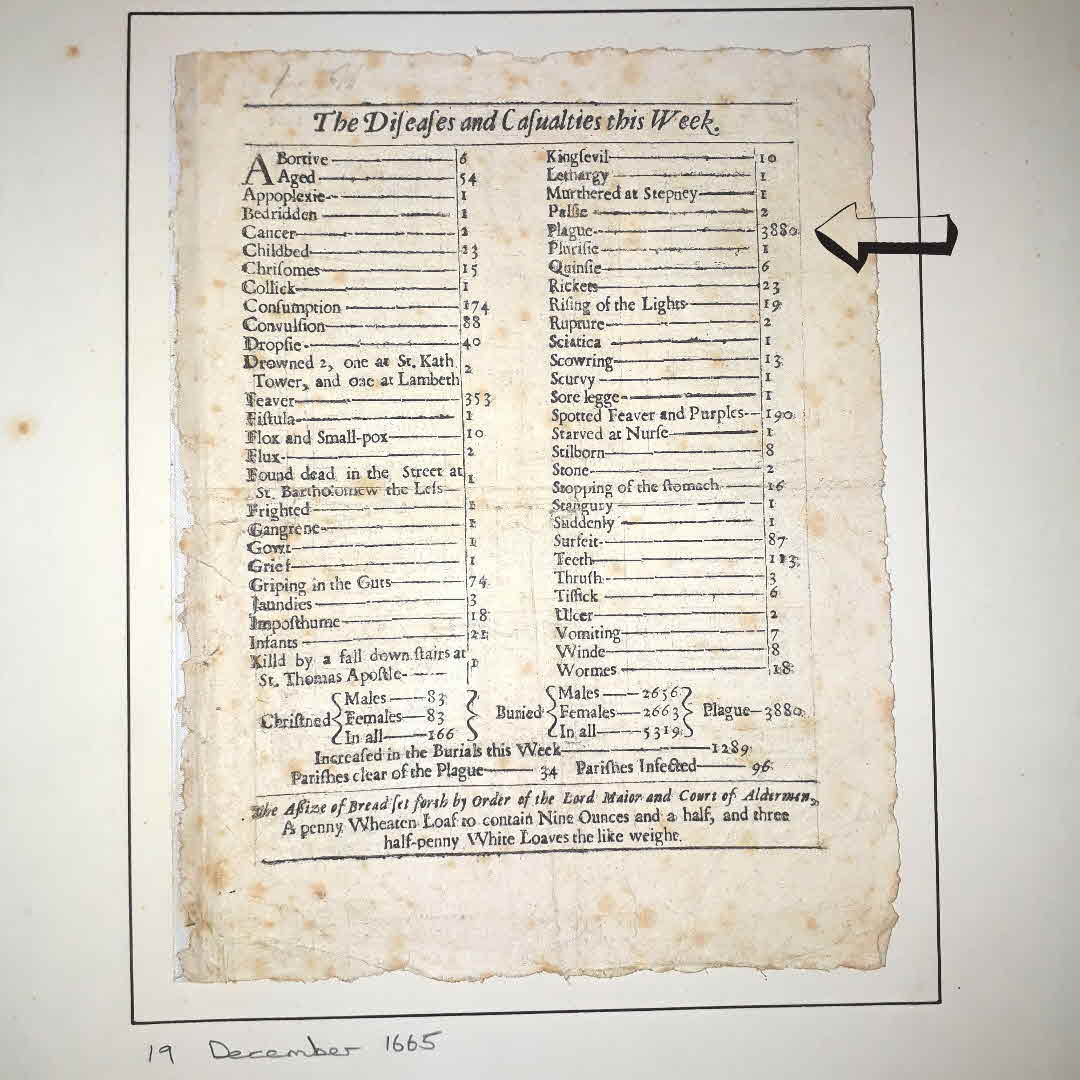 The Diſeaſes and Caſualties this Week.
ABortive 6
Aged 54
Appoplexie 1
Bedridden 1
Cancer 2
Childbed 23
Chriſomes 15
Collick 1
Conſumption 174
Convulſion 88
Dropſie 40
Drowned 2, one at St. Kath. Tower, and one at Lambeth 2
Feaver 353
Fiſtula 1
Flox and Small-pox 10
Flux 2
Found dead in the Street at St. Bartholomew the Leſs 1
Frighted 1
Gangrene 1
Gowt 1
Grief 1
Griping in the Guts 74
Jaundies 3
Impoſthume 18
Infants 21
Killd by a fall down ſtairs at St. Thomas Apoſtle 1
Kingſevil 10
Lethargy 1
Murthered at Stepney 1
Palſie 2
Plague 3880
Pluriſie 1
Quinſie 6
Rickets 23
Riſing of the Lights 19
Rupture 2
Sciatica 1
Scowring 13
Scurvy 1
Sore legge 1
Spotted Feaver and Purples 190
Starved at Nurſe 1
Stilborn 8
Stone 2
Stopping of the ſtomach 16
Strangury 1
Suddenly 1
Surfeit 87
Teeth 113
Thruſh 3
Tiſſick 6
Ulcer 2
Vomiting 7
Winde 8
Wormes 18
Chriſtned Males 83 Females 83 In all 166
Buried Males 2656 Females 2663 In all 5319 Plague 3880
Increaſed in the Burials this Week 1289
Pariſhes clear of the Plague 34 Pariſhes Infected 96
The Aſſize of Bread ſet forth by Order of the Lord Maior and Court of Aldermen,
A penny Wheaten Loaf to contain Nine Ounces and a half, and three
half-penny White Loaves the like weight.
19 December 1665